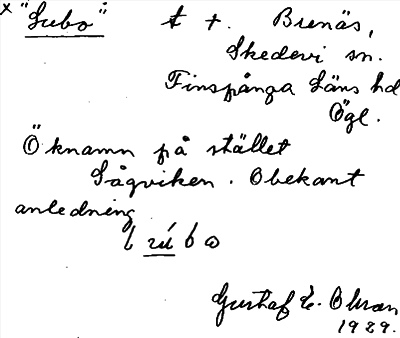 x "Lubo" t +. Brenäs,
Skedevi sn.
Finspånga läns hd
Ögl.
Öknamn på stället
Sågviken. Obekant
anledning
Gustaf E. Ohran
1929.